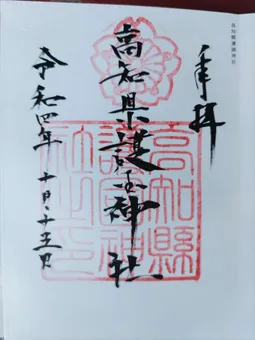 高知県護国神社
奉拝
高知県護国神社
令和四年 十月十五日
高知縣護國神社之印